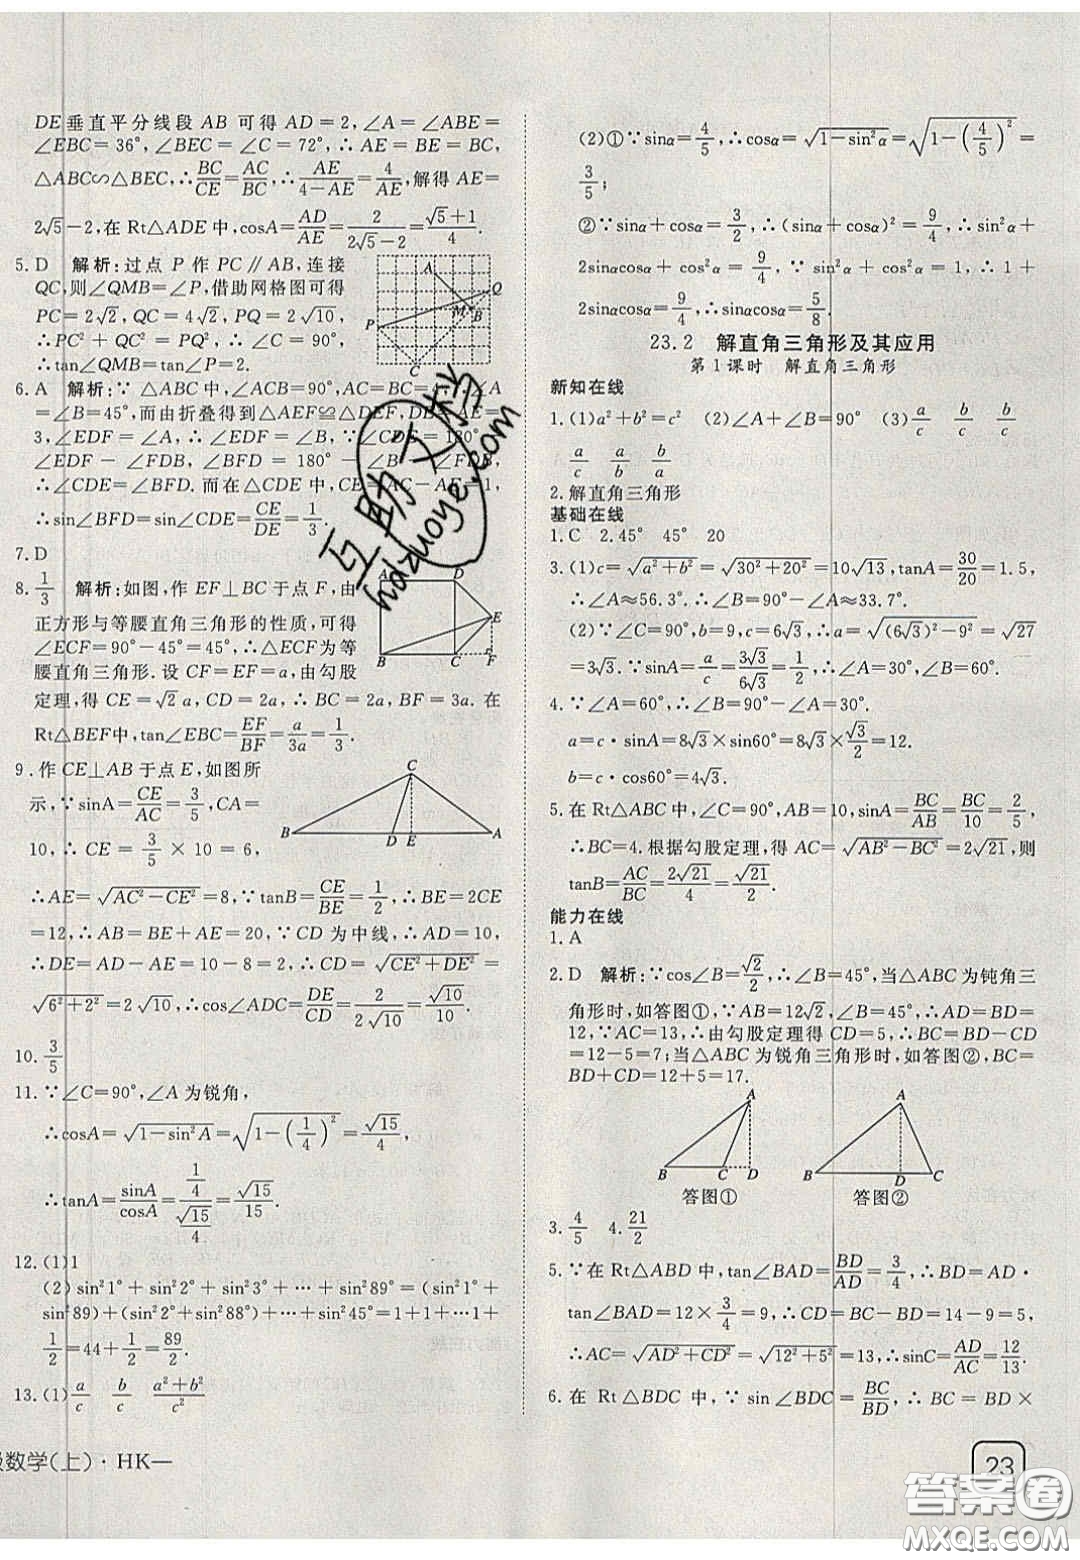 DE垂直平分线段 AB 可得 AD=2,∠A=∠ABE=
∠EBC=36°,∠BEC=∠C=72°,∴AE=BE=BC,
△ABC∽△BEC,∴BC/CE=AC/BC,∴AE/(4-AE)=4/AE,解得 AE=
2√5-2,在 Rt△ADE 中,cosA=AD/AE=2/(2√5-2)=(√5+1)/4.
5. D 解析:过点 P 作 PC∥AB,连接
QC,则∠QMB=∠P,借助网格图可得
PC=2√2,QC=4√2,PQ=2√10,
∴PC²+QC²=PQ²,∴∠PCQ=90°,
∴tan∠QMB=tan∠P=2.
A
Q
M
B
P
C
6. A 解析:∵△ABC中,∠ACB=90°,AC=BC=4,∴∠A
=∠B=45°,而由折叠得到△AEF≌△DEF,DE=AE=
3,∠EDF=∠A,∴∠EDF=∠B,∵∠CDE=180°-
∠EDF-∠FDB,∠BFD=180°-∠B-∠FDB,
∴∠CDE=∠BFD.而在△CDE中,CE=AC-AE=1,
∴sin∠BFD=sin∠CDE=CE/DE=1/3.
7. D
8. 1/3 解析:如图,作 EF⊥BC于点 F,由
正方形与等腰直角三角形的性质,可得
∠ECF=90°-45°=45°,∴△ECF为等
腰直角三角形.设 CF=EF=a,由勾股
定理,得 CE=√2a,CD=2a,∴BC=2a,BF=3a.在
Rt△BEF中,tan∠EBC=EF/BF=a/3a=1/3.
A D
E
B C F
9. 作CE⊥AB于点E,如图所
示,∵sinA=CE/AC=3/5,CA=
10,∴CE=3/5×10=6,
C
B D E A
∴AE=√(AC²-CE²)=8,∵tanB=CE/BE=1/2,∴BE=2CE
=12,∴AB=BE+AE=20,∵CD为中线,∴AD=10,
∴DE=AD-AE=10-8=2,∴CD=√(CE²+DE²)=
√(6²+2²)=2√10,∴cos∠ADC=DE/CD=2/(2√10)=√10/10.
10. 3/5
11. ∵∠C=90°,∠A为锐角,
∴cosA=√(1-sin²A)=√(1-(1/4)²)=√15/4,
∴tanA=sinA/cosA=(1/4)/(√15/4)=√15/15.
12. (1)1
(2)sin²1°+sin²2°+sin²3°+…+sin²89°=(sin²1°+
sin²89)+(sin²2°+sin²88°)+…+sin²45°=1+1+…1+
1/2=44+1/2=89/2.
13. (1)a/c b/c (a²+b²)/c²
级数学(上)·HK—
(2)①∵sinα=4/5,∴cosα=√(1-sin²α)=√(1-(4/5)²)=
3/5;
②∵sinα+cosα=3/2,∴(sinα+cosα)²=9/4,∴sin²α+
2sinαcosα+cos²α=9/4,∵sin²α+cos²α=1,∴1+
2sinαcosα=9/4,∴sinαcosα=5/8.
23.2 解直角三角形及其应用
第1课时 解直角三角形
新知在线
1. (1)a²+b²=c² (2)∠A+∠B=90° (3)a/c b/c b/c
a/c a/b b/a
2. 解直角三角形
基础在线
1. C 2. 45° 45° 20
3. (1)c=√(a²+b²)=√(30²+20²)=10√13,tanA=30/20=1.5,
∴∠A≈56.3°.∴∠B=90°-∠A≈33.7°.
(2)∵∠C=90°,b=9,c=6√3,∴a=√((6√3)²-9²)=√27
=3√3.∵sinA=a/c=3√3/6√3=1/2,∴∠A=30°,∠B=60°.
4. ∵∠A=60°,∴∠B=90°-∠A=30°.
a=c·sin60°=8√3×sin60°=8√3×√3/2=12.
b=c·cos60°=4√3.
5. 在Rt△ABC中,∠C=90°,AB=10,sinA=BC/AB=BC/10=2/5,
∴BC=4.根据勾股定理,得 AC=√(AB²-BC²)=2√21,则
tanB=AC/BC=2√21/4=√21/2.
能力在线
1. A
2. D 解析:∵cos∠B=√2/2,∴∠B=45°,当△ABC为钝角三
角形时,如答图①,∵AB=12√2,∠B=45°,∴AD=BD=
12,∵AC=13,∴由勾股定理得 CD=5,∴BC=BD-CD
=12-5=7;当△ABC为锐角三角形时,如答图②,BC=
BD+CD=12+5=17.
A
B C D
答图①
A
B D C
答图②
3. 4/5 4. 21/2
5. ∵在 Rt△ABD 中,tan∠BAD=BD/AD=3/4,∴BD=AD·
tan∠BAD=12×3/4=9,∴CD=BC-BD=14-9=5,
∴AC=√(AD²+CD²)=√(12²+5²)=13,∴sinC=AD/AC=12/13.
6. 在 Rt△BDC 中,∵sin∠BDC=BC/BD,∴BC=BD×
23
互助文档
hdzuoye.com
答案圈
MXQE.COM